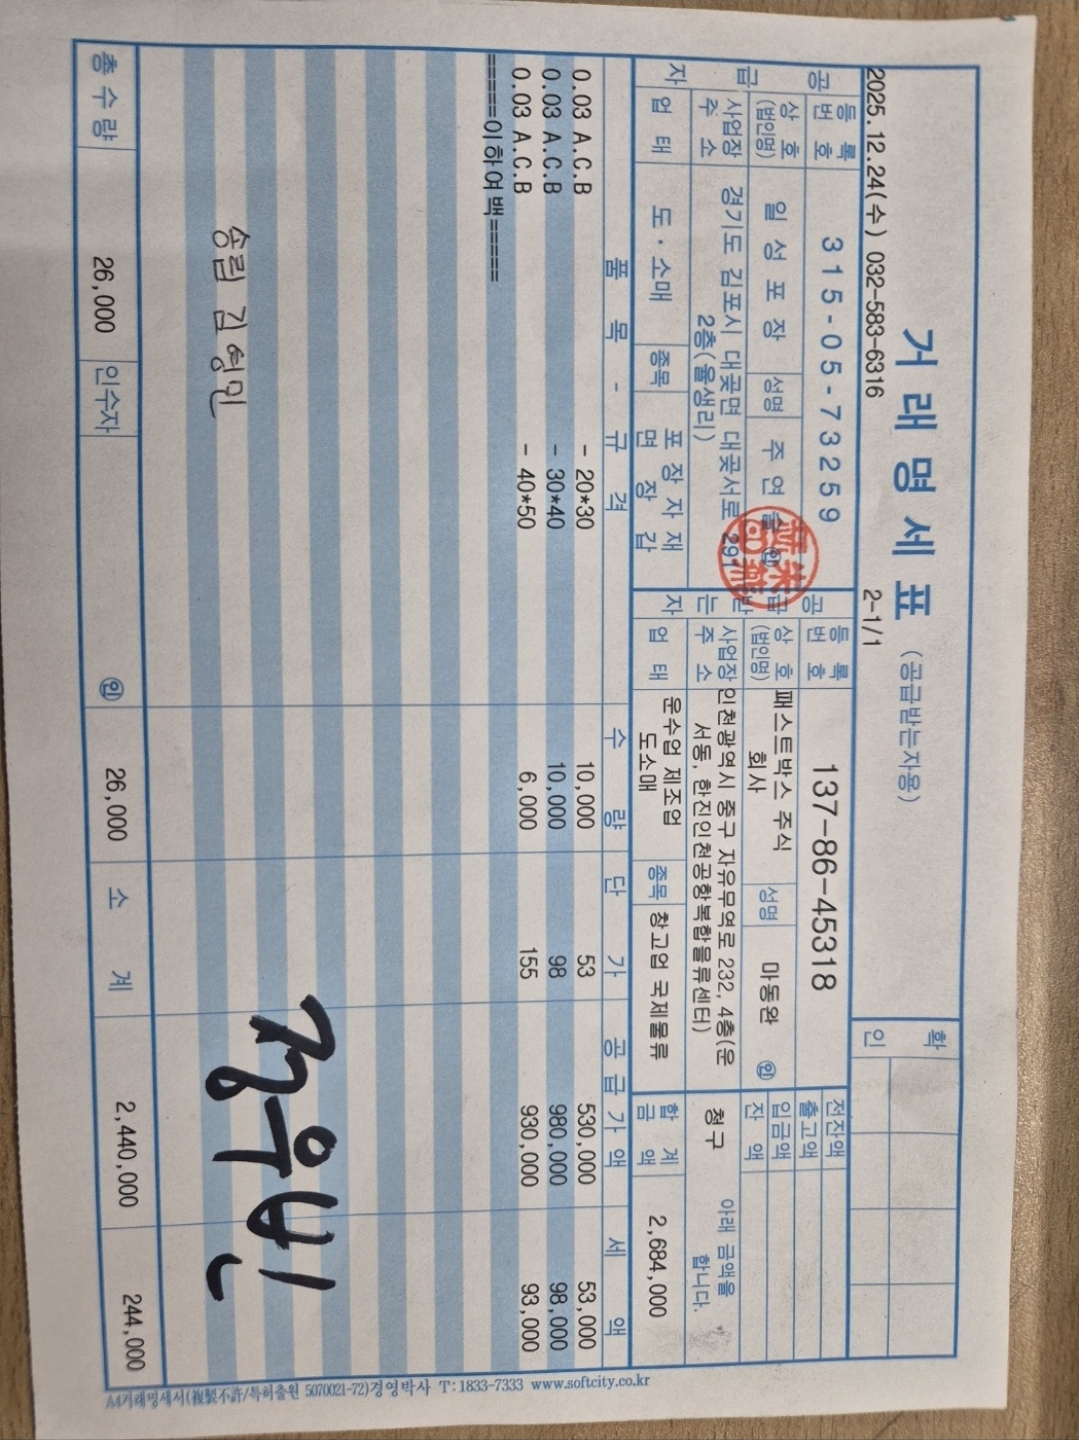 거래명세표 (공급받는자용)
2025.12.24(수) 032-583-6316 2-1/1
확인
공급자
등록번호 315-05-73259
상호(법인명) 일성포장 성명 주연 ㊞
사업장주소 경기도 김포시 대곶면 대곶서로 291
2층(율생리)
업태 도·소매 종목 포장자재
면장갑
공급받는자
등록번호 137-86-45318
상호(법인명) 패스트박스 주식
회사 성명 마동완 ㊞
사업장주소 인천광역시 중구 자유무역로 232, 4층(운
서동, 한진인천공항복합물류센터)
업태 운수업 제조업
도소매 종목 창고업 국제물류
전잔액
출고액
입금액
잔액
아래 금액을
청구 합니다.
합계금액 2,684,000
품목 - 규격 수량 단가 공급가액 세액
0.03 A.C.B - 20*30 10,000 53 530,000 53,000
0.03 A.C.B - 30*40 10,000 98 980,000 98,000
0.03 A.C.B - 40*50 6,000 155 930,000 93,000
=====이하여백=====
송림 김형민
정우빈
총수량 26,000 인수자 ㊞ 26,000 소계 2,440,000 244,000
A4거래명세서(複製不許/특허출원 5070021-72)경영박사 T:1833-7333 www.softcity.co.kr